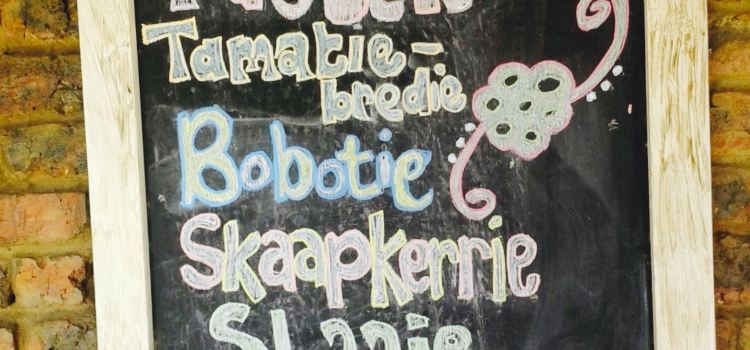 Tamatie-
bredie
Bobotie
Skaapkerrie